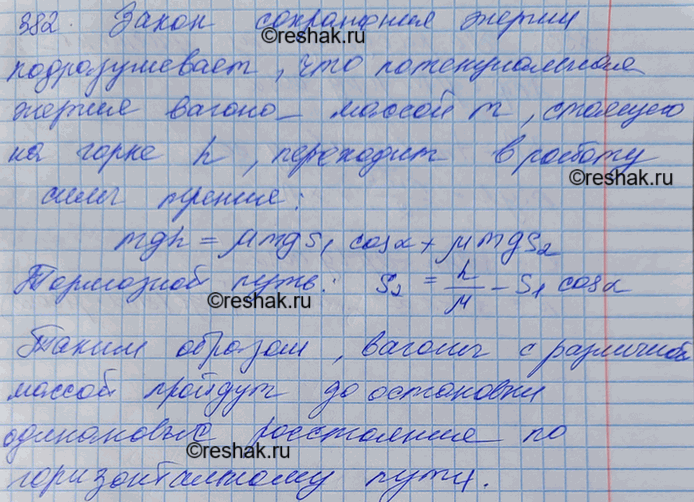 382. Закон сохранения энергии
©reshak.ru
подразумевает, что потенциальная
энергия вагона массой m, стоящего
на горке h, переходит в работу
©reshak.ru
силы трения:
mgh = μmgs₁ cosα + μmgs₂
Тормозной путь: s₂ = h/μ - s₁ cosα
©reshak.ru
Таким образом, вагоны с различной
массой пройдут до остановки
©reshak.ru
одинаковые расстояния по
©reshak.ru
горизонтальному пути.